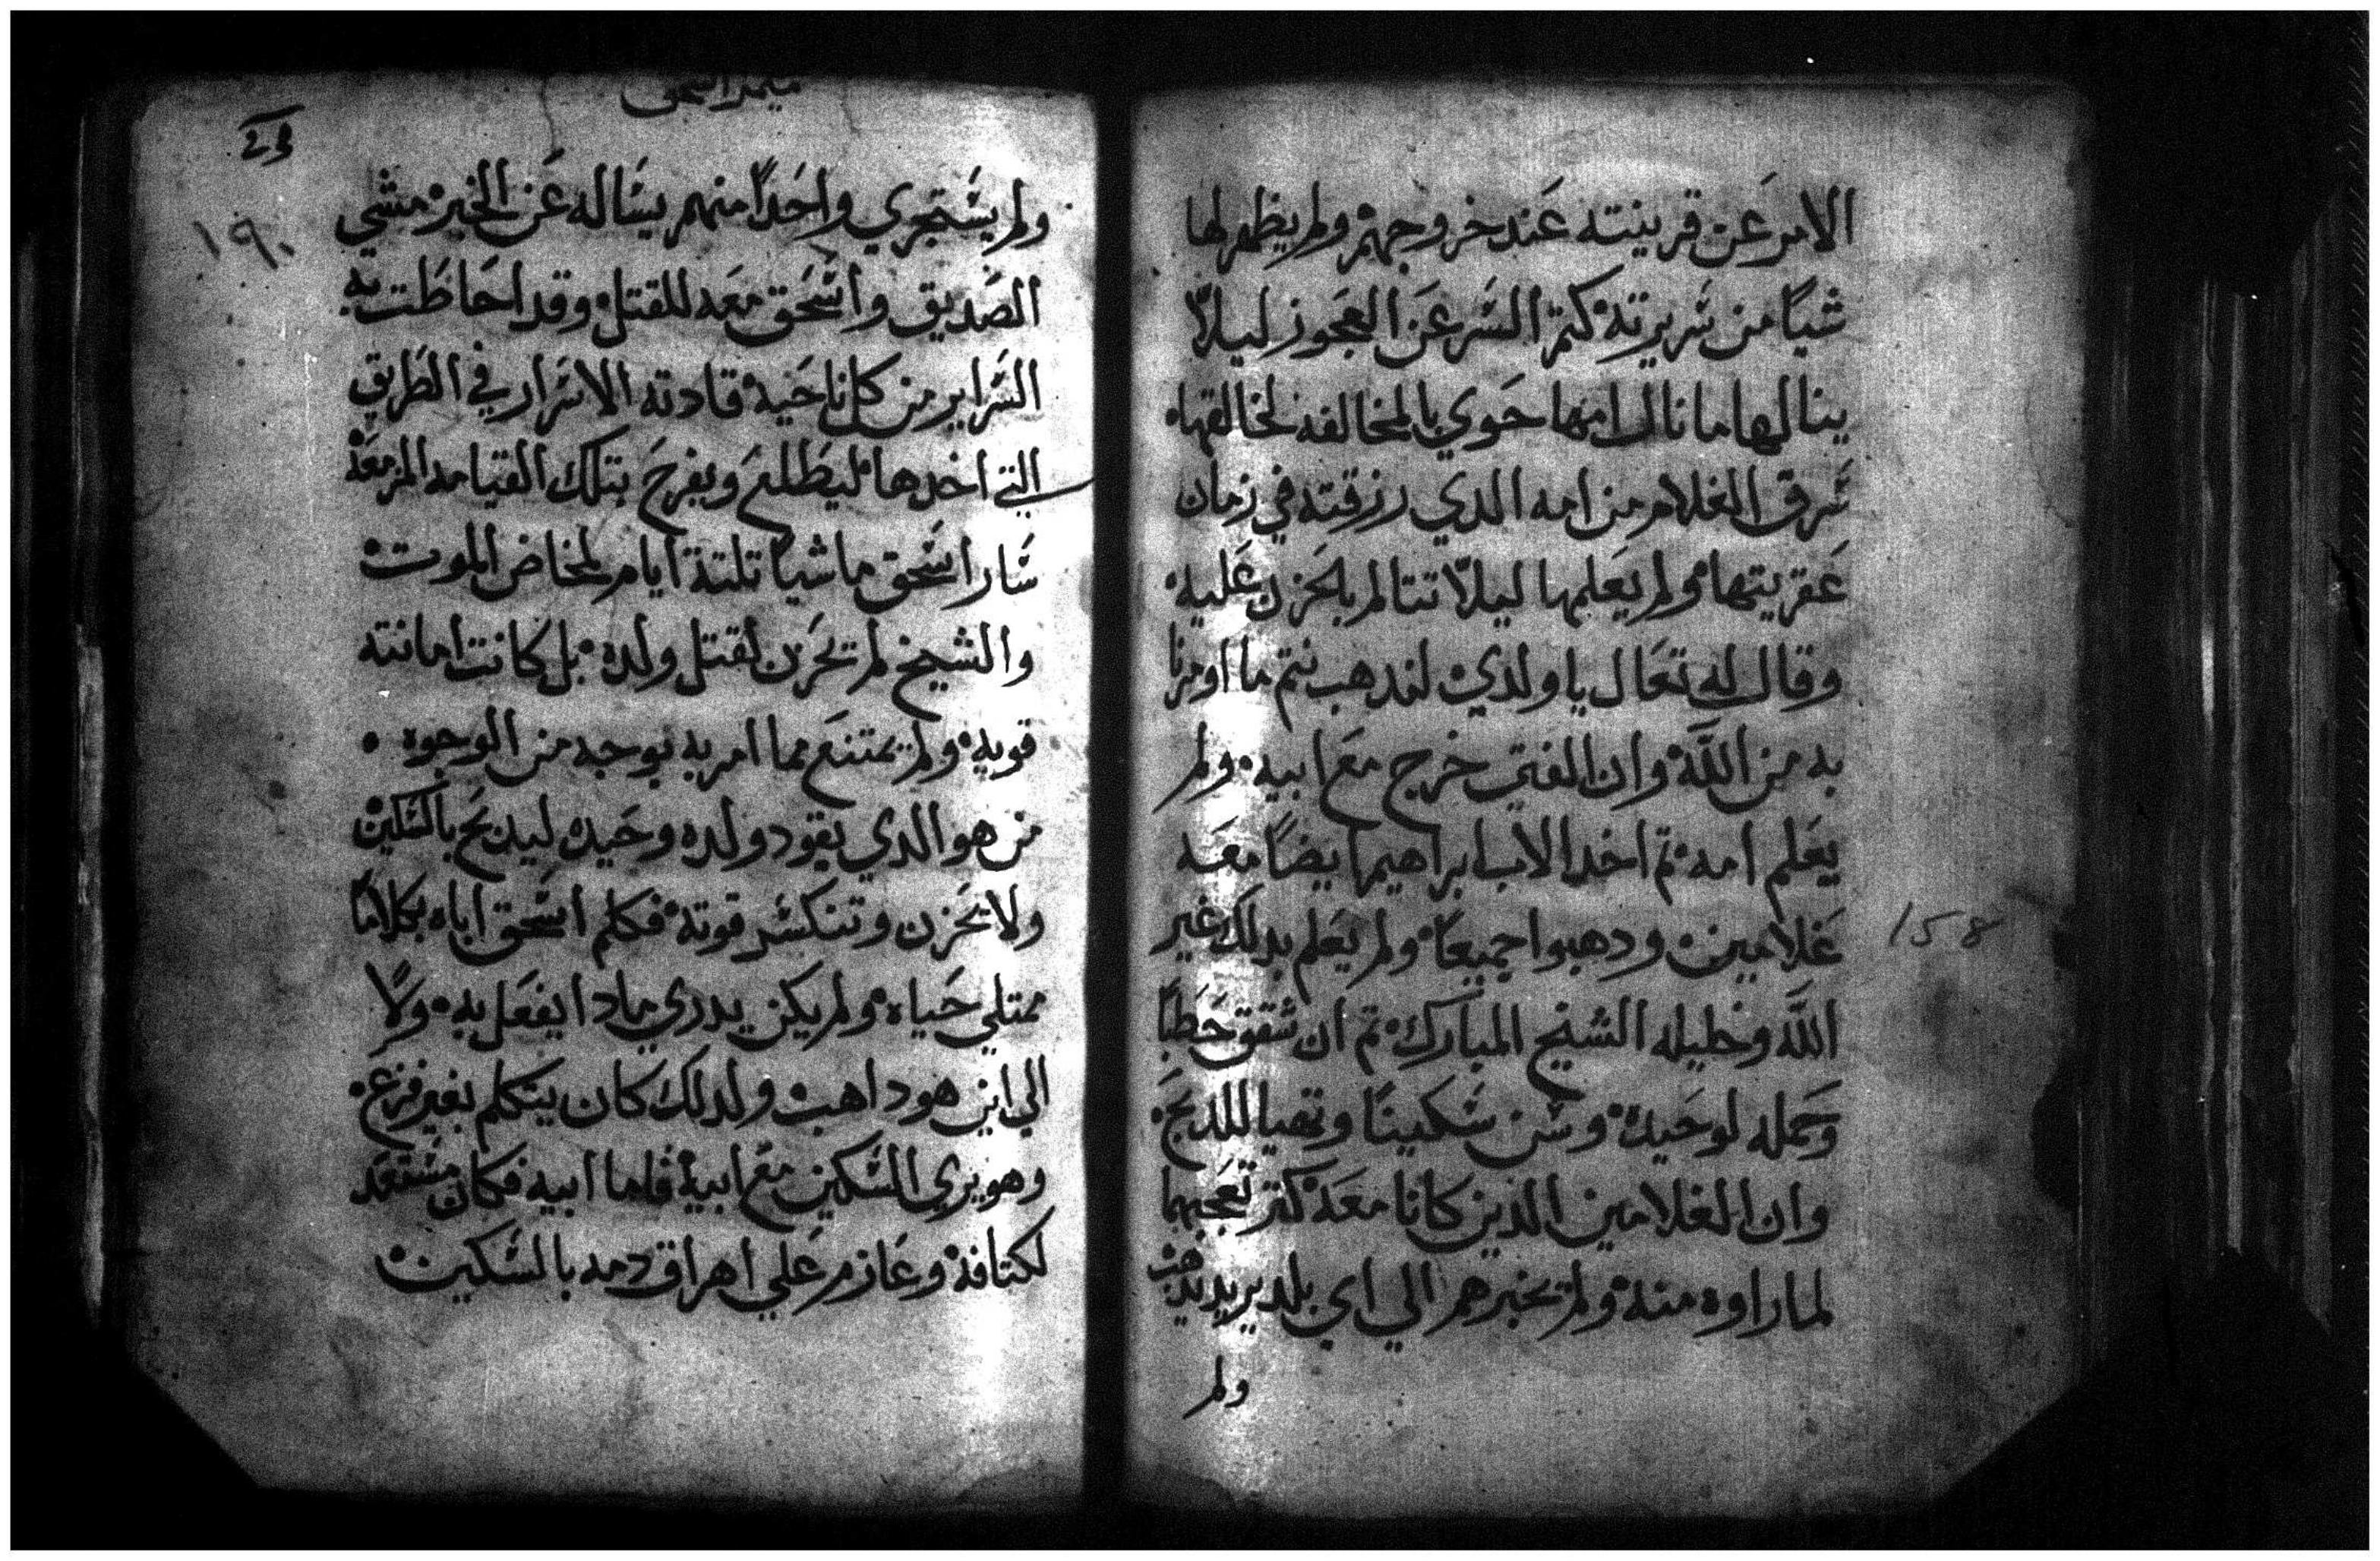 الامر عن قرينته عند خروجهم ولم يظهر لها
شيًا من سريرته كتم السر عن العجوز ليلاّ
ينالها ما نال امها حوي بالمخالفه لخالقها
سرق الغلام من امه الدي رزقته في زمان
عقريتها ولم يعلمها ليلاّ تتالم بالحزن عليه
وقال له تعال يا ولدي لندهب نتم ما اومرنا
به من اللّه وان الفتي خرج مع ابيه ولم
يعلم امه تم اخد الاب ابراهيم ايضًا معه
غلامين ودهبوا جميعًا ولم يعلم بدلك غير
اللّه وخليله الشيخ المبارك تم ان شقق حطبًا
وحمله لوحيده وسن سكينًا وتهيا للدبح
وان الغلامين الدين كانا معه كتر تعجبهما
لما راوه منه ولم يخبرهم الي اي بلد يريد يدهب
ولم
158
ميمر اسحق
۱۹۰
ولم يستجري واحدًا منهم يساله عن الخبر مشي
الصديق واسحق معه للقتل وقد احاطت به
السراير من كل ناحية قادته الاسرار في الطريق
التي اخدها ليطلع ويفرح بتلك القيامه المزمعة
سار اسحق ماشيًا تلتة ايام لمخاض الموت
والشيخ لم تحزن لقتل ولده بل كانت امانته
قويه ولم يمتنع مما امر به بوجه من الوجوه
من هو الدي يقود ولده وحيده ليدبح بالسكين
ولا تحزن وتنكسر قوته فكلم اسحق اباه بكلامًا
ممتلي حياه ولم يكن يدري مادا يفعل به ولا
الي اين هو داهب ولدلك كان يتكلم بغير فزع
وهو يري السكين مع ابيه فاما ابيه فكان مستعد
لكتافة وعازم علي اهراق دمه بالسكين